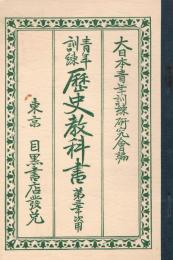 大日本青年訓練研究會編
青年訓練 歷史教科書 第三年次用
東京 目黒書店發兌